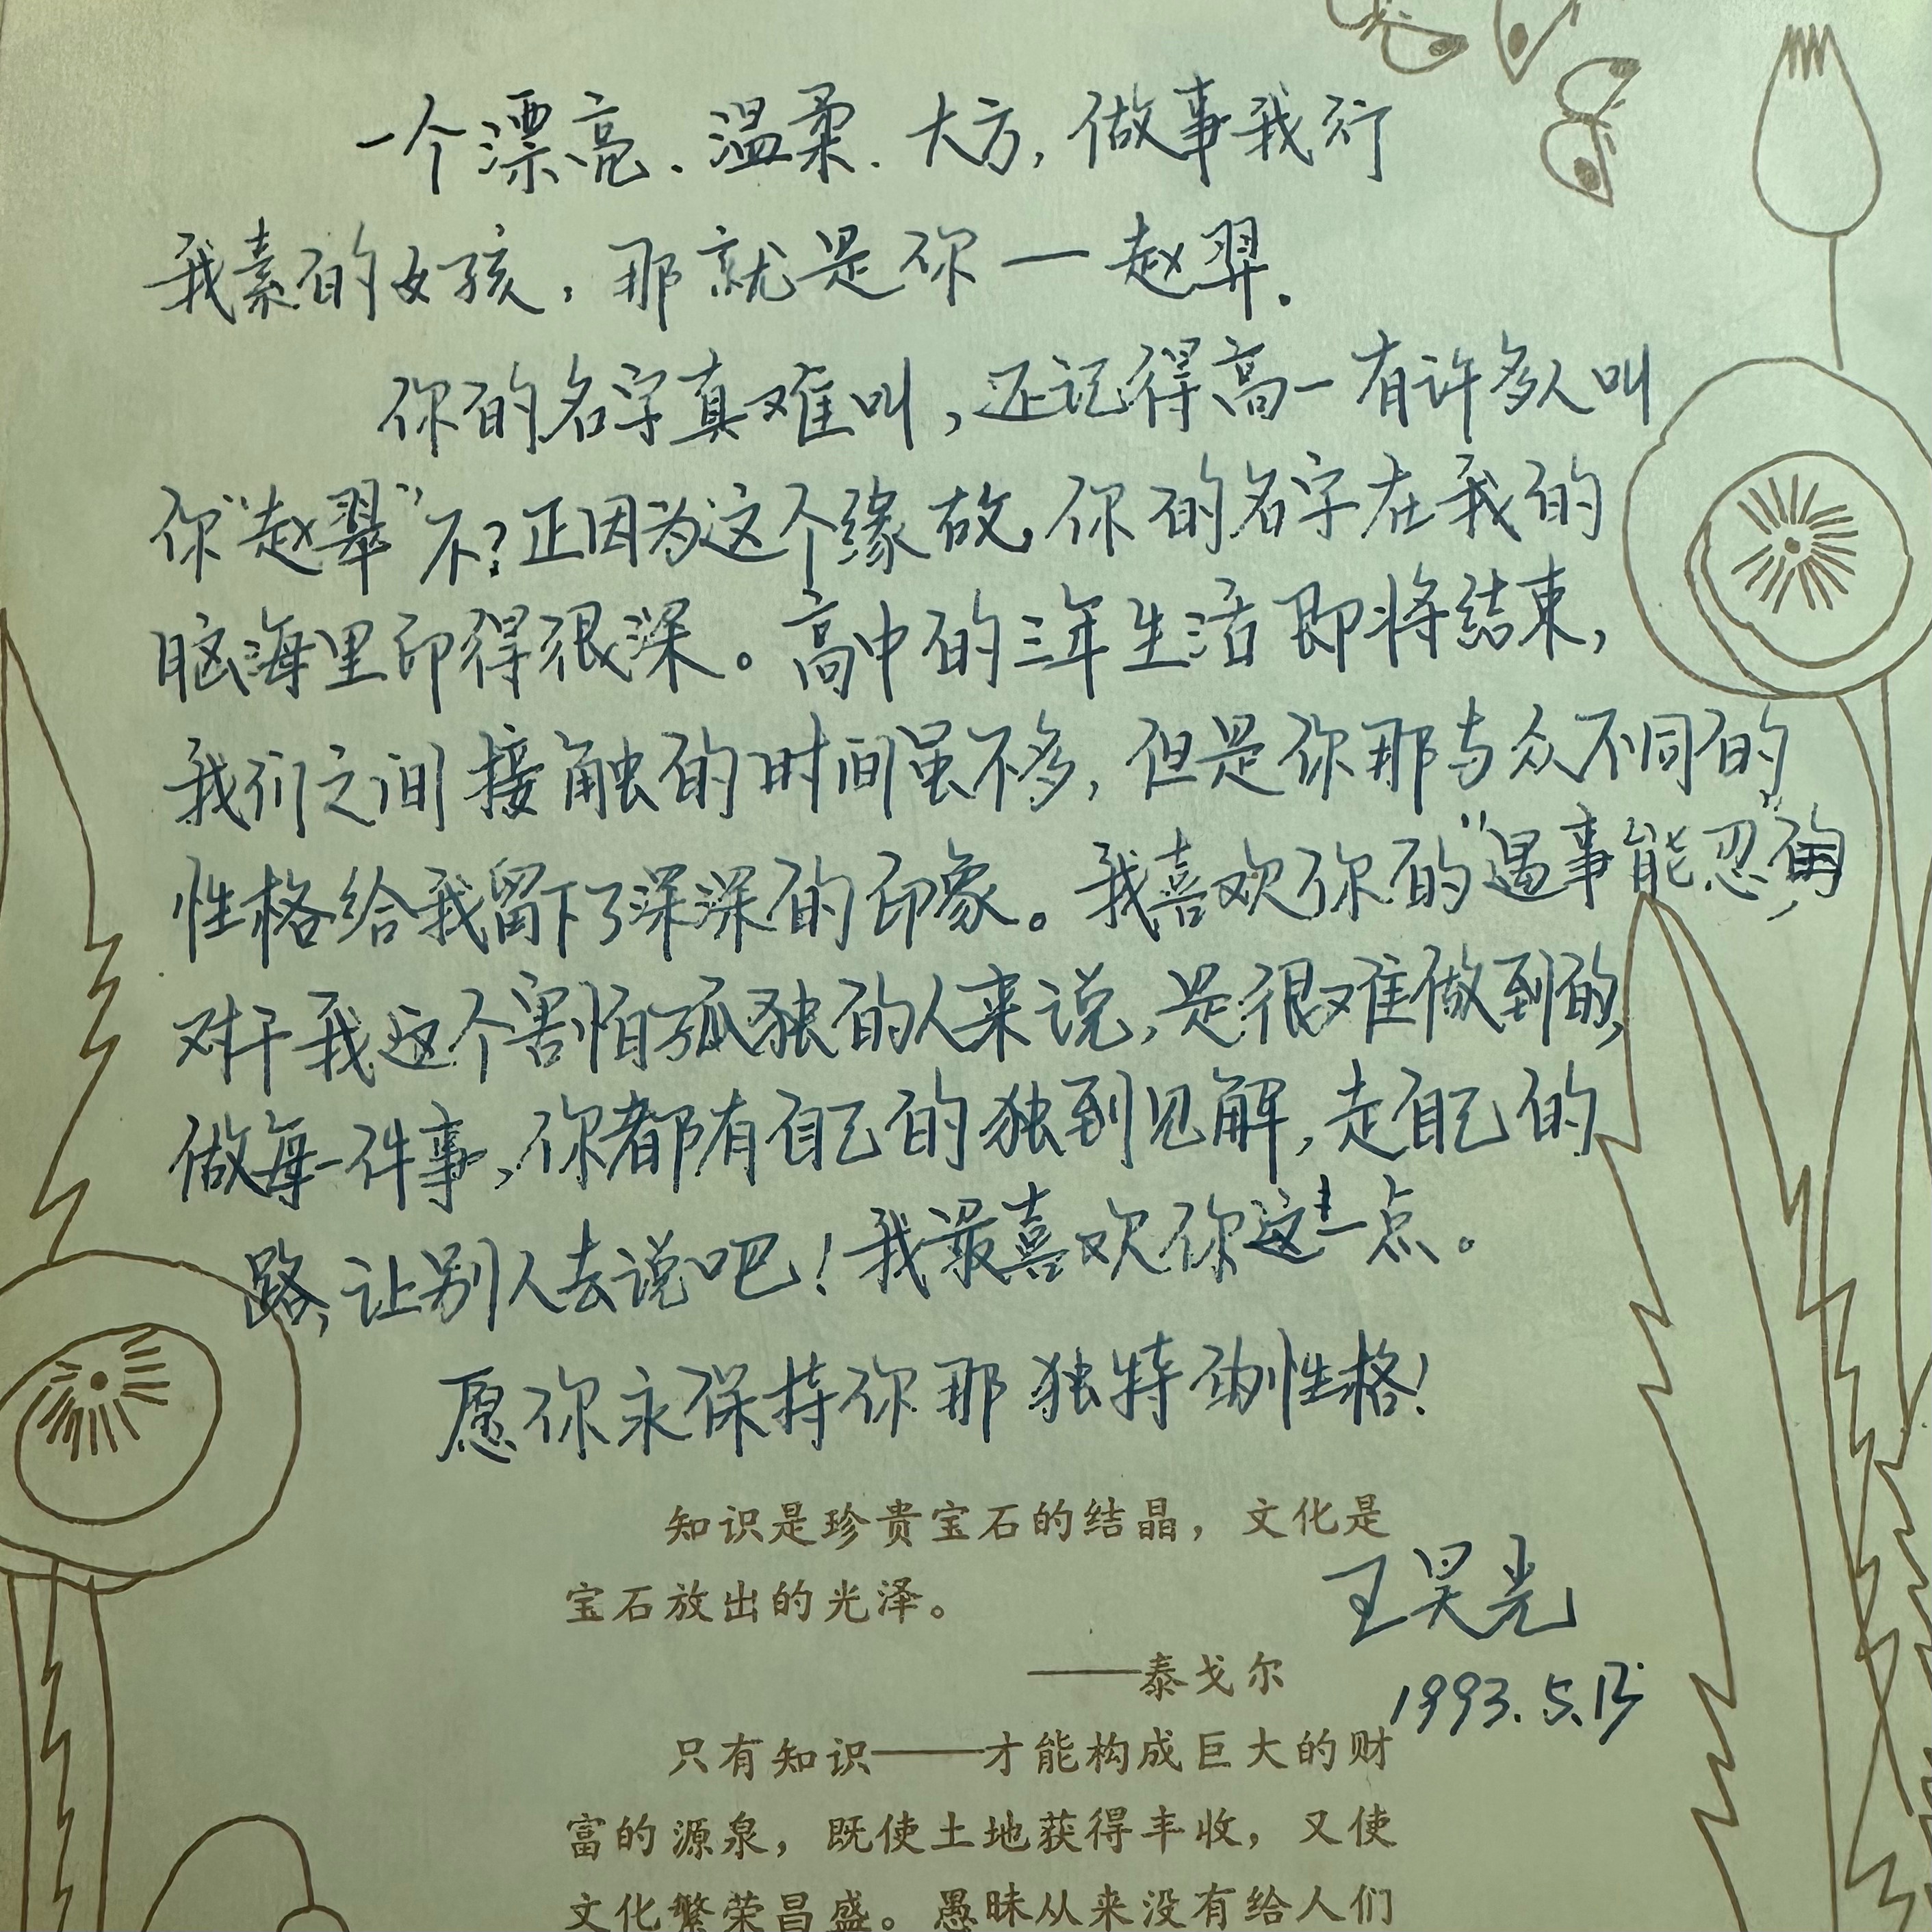 一个漂亮、温柔、大方，做事我行
我素的女孩，那就是你一赵羿．
你的名字真难叫，还记得高一有许多人叫
你“赵翠”不？正因为这个缘故，你的名字在我的
脑海里印得很深。高中的三年生活即将结束，
我们之间接触的时间虽不多，但是你那与众不同的
性格给我留下了深深的印象。我喜欢你的“遇事能忍”，
对于我这个害怕孤独的人来说，是很难做到的，
做每一件事，你都有自己的独到见解，走自己的
路，让别人去说吧！我最喜欢你这一点。
愿你永保持你那独特的性格！
知识是珍贵宝石的结晶，文化是
宝石放出的光泽。
——泰戈尔
王昊光
1993.5.13
只有知识——才能构成巨大的财
富的源泉，既使土地获得丰收，又使
文化繁荣昌盛。愚昧从来没有给人们